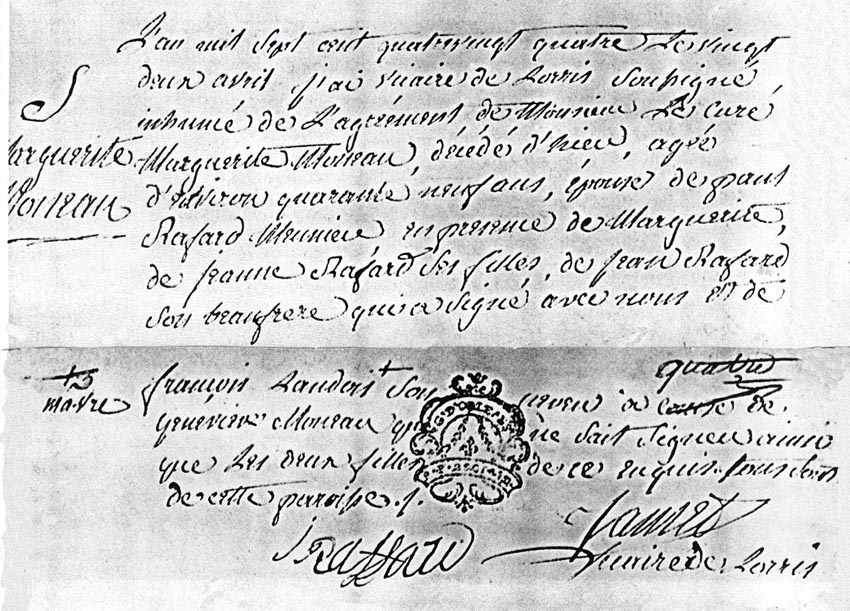 L'an mil sept cent quatrevingt quatre Le vingt
deux avril, j'ai vicaire de Lorris Soussigné
inhumé de L'agrément de Monsieur Le curé
S
Marguerite
Moreau
Marguerite Moreau, décédé d'hier, agée
d'Environ quarante neuf ans, épouse de paul
Rafard Meunier, en presence de Marguerite,
de jeanne Rafard Ses filles, de jean Rafard
Son beaufrere qui a Signé avec nous et de
quatre
françois Landois + Son neveu a cause de
Genevieve Moreau ne Sait Signer ainsi
que Les deux filles de ce enquis Sous
de cette paroisse ./.
G. D'ORLEANS
J Raffard
vicaire de Lorris